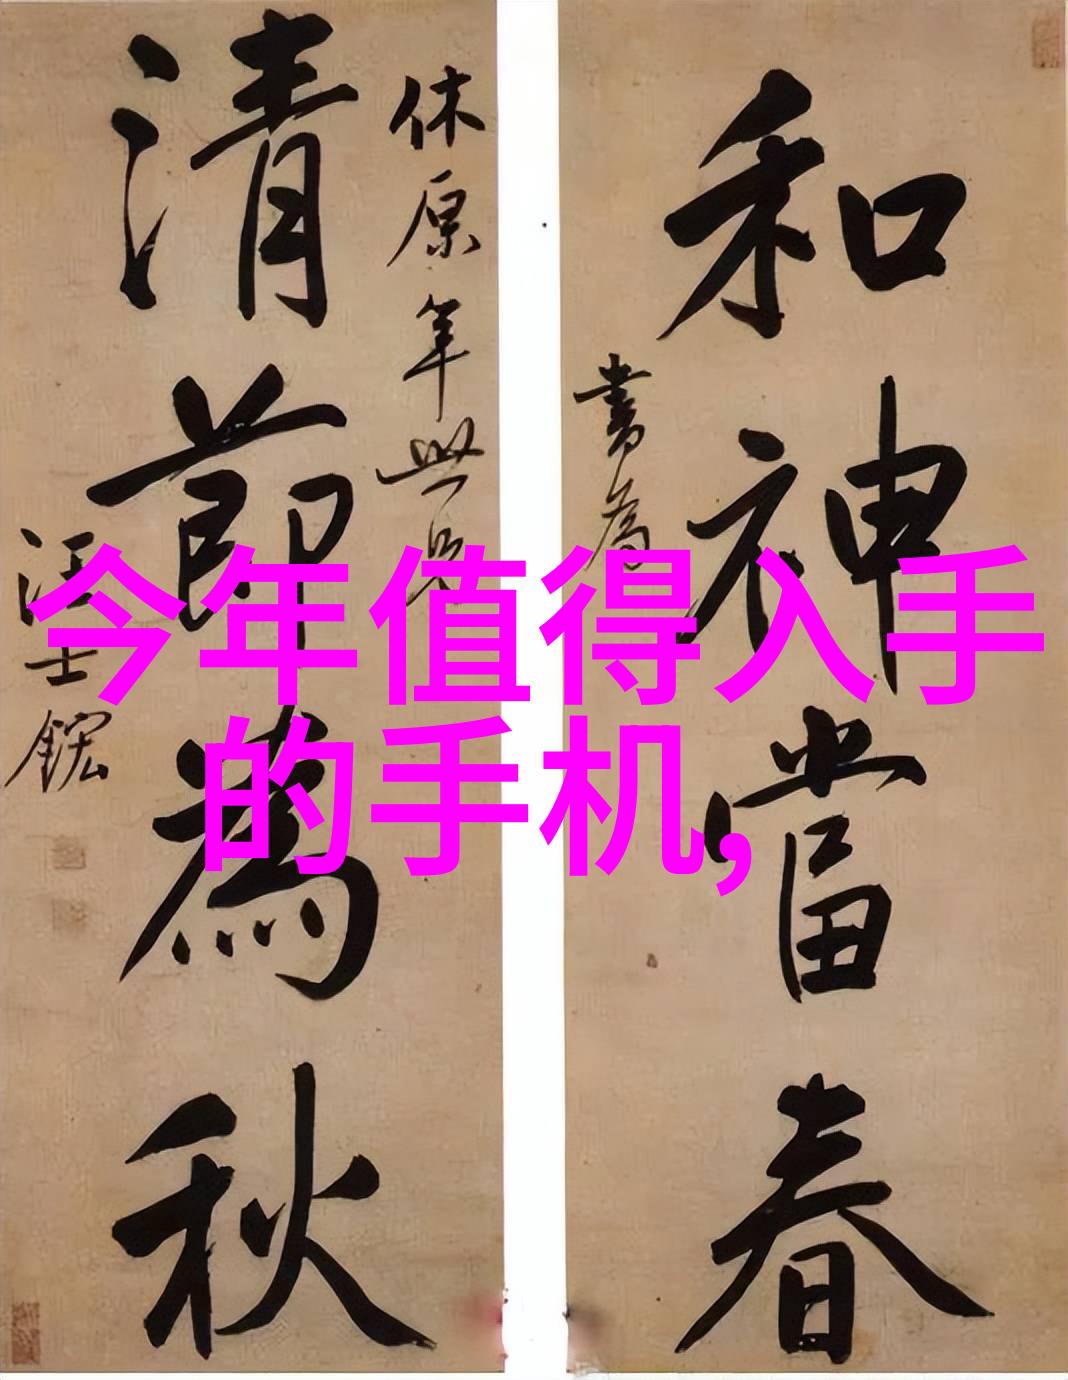 和神當春
書為
休原年世兄
清節為秋
汪士鋐
今年值得入手
的手机,